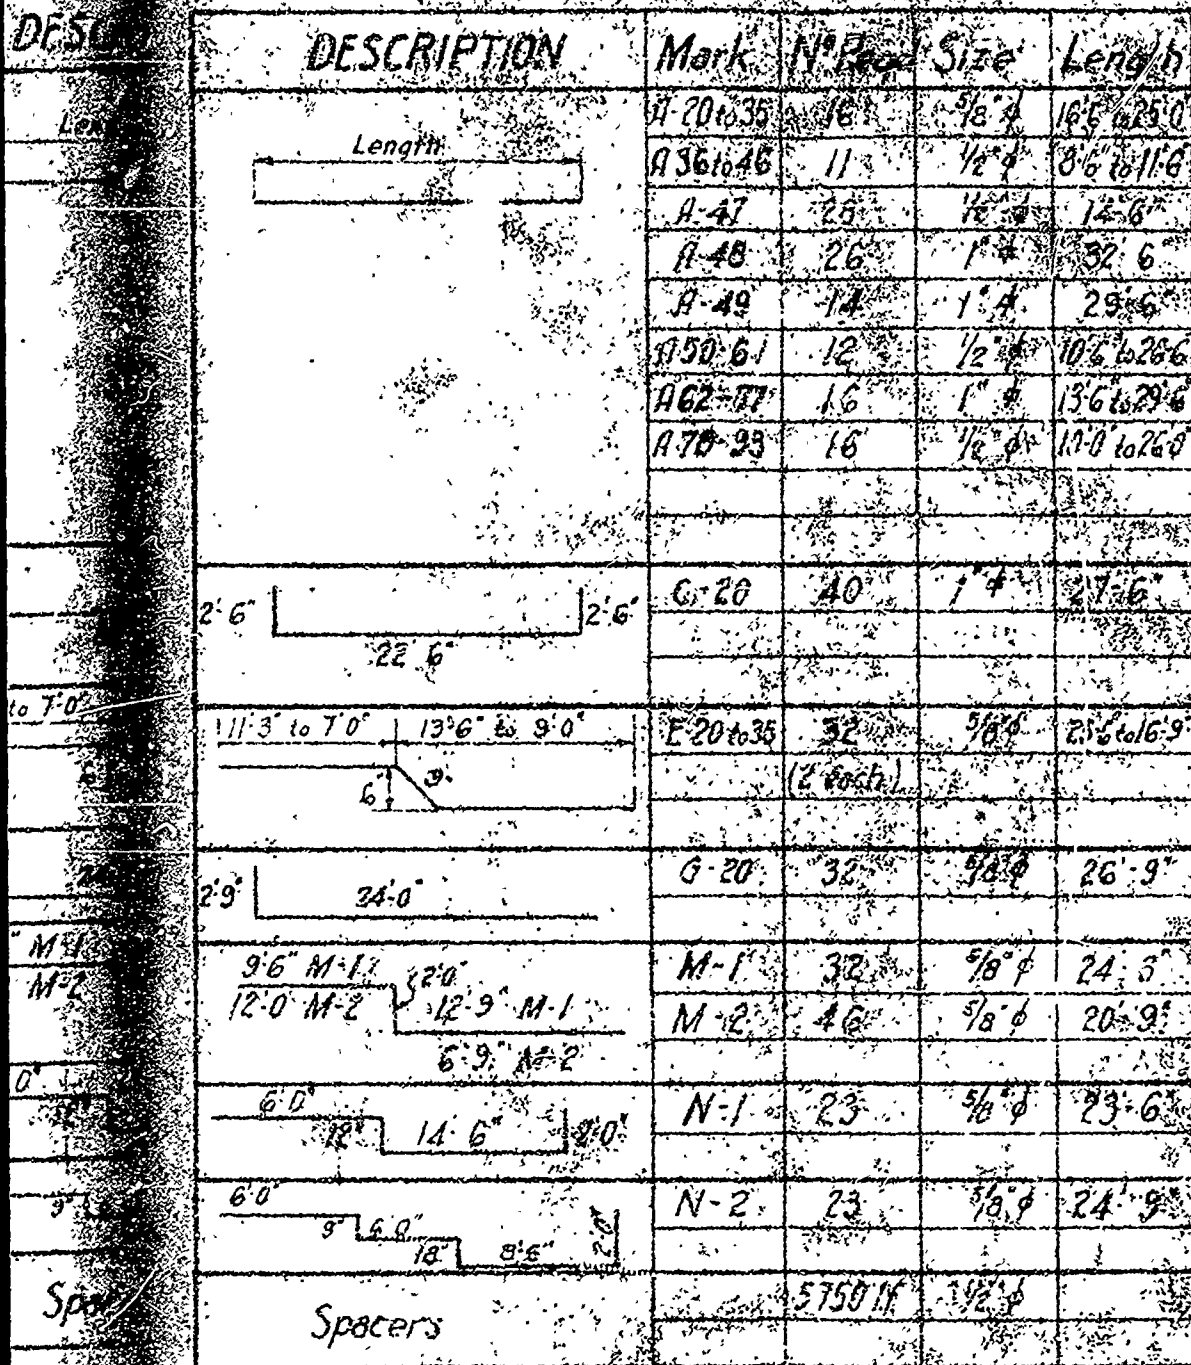 DESCRIPTION Mark Nº Reqd Size Length
Length
A-20 to 35 16 5/8" ϕ 16'6" to 25'0"
A 36 to 46 11 1/2" ϕ 8'6" to 11'6"
A-47 28 1/2" ϕ 14'-6"
A-48 26 1" ϕ 32'-6"
A-49 14 1" ϕ 29'-6"
A 50-61 12 1/2" ϕ 10'6" to 26'6"
A 62-77 16 1" ϕ 13'6" to 29'6"
A 78-93 16 1/2" ϕ to 26'0"
2'-6" 22'-6" 2'-6"
C-20 40 1" ϕ 27'-6"
11'-3" to 7'0" 13'-6" to 9'0"
6" 9"
E-20 to 35 32 5/8" ϕ to 16'-9"
(2 each)
2'-9" 24'-0"
G-20 32 5/8" ϕ 26'-9"
9'6" M-1 2'0"
12'0" M-2 12'-9" M-1
6'-9" M-2
M-1 32 5/8" ϕ 24'-3"
M-2 46 5/8" ϕ 20'-9"
6'0"
12" 14'-6" 2'0"
N-1 23 5/8" ϕ 23'-6"
6'0"
9" 6'0"
18" 8'6" 2'0"
N-2 23 5/8" ϕ 24'-9"
Spacers 5750 lf 1/2" ϕ
to 7'0"
M-1
M-2
0"
9"